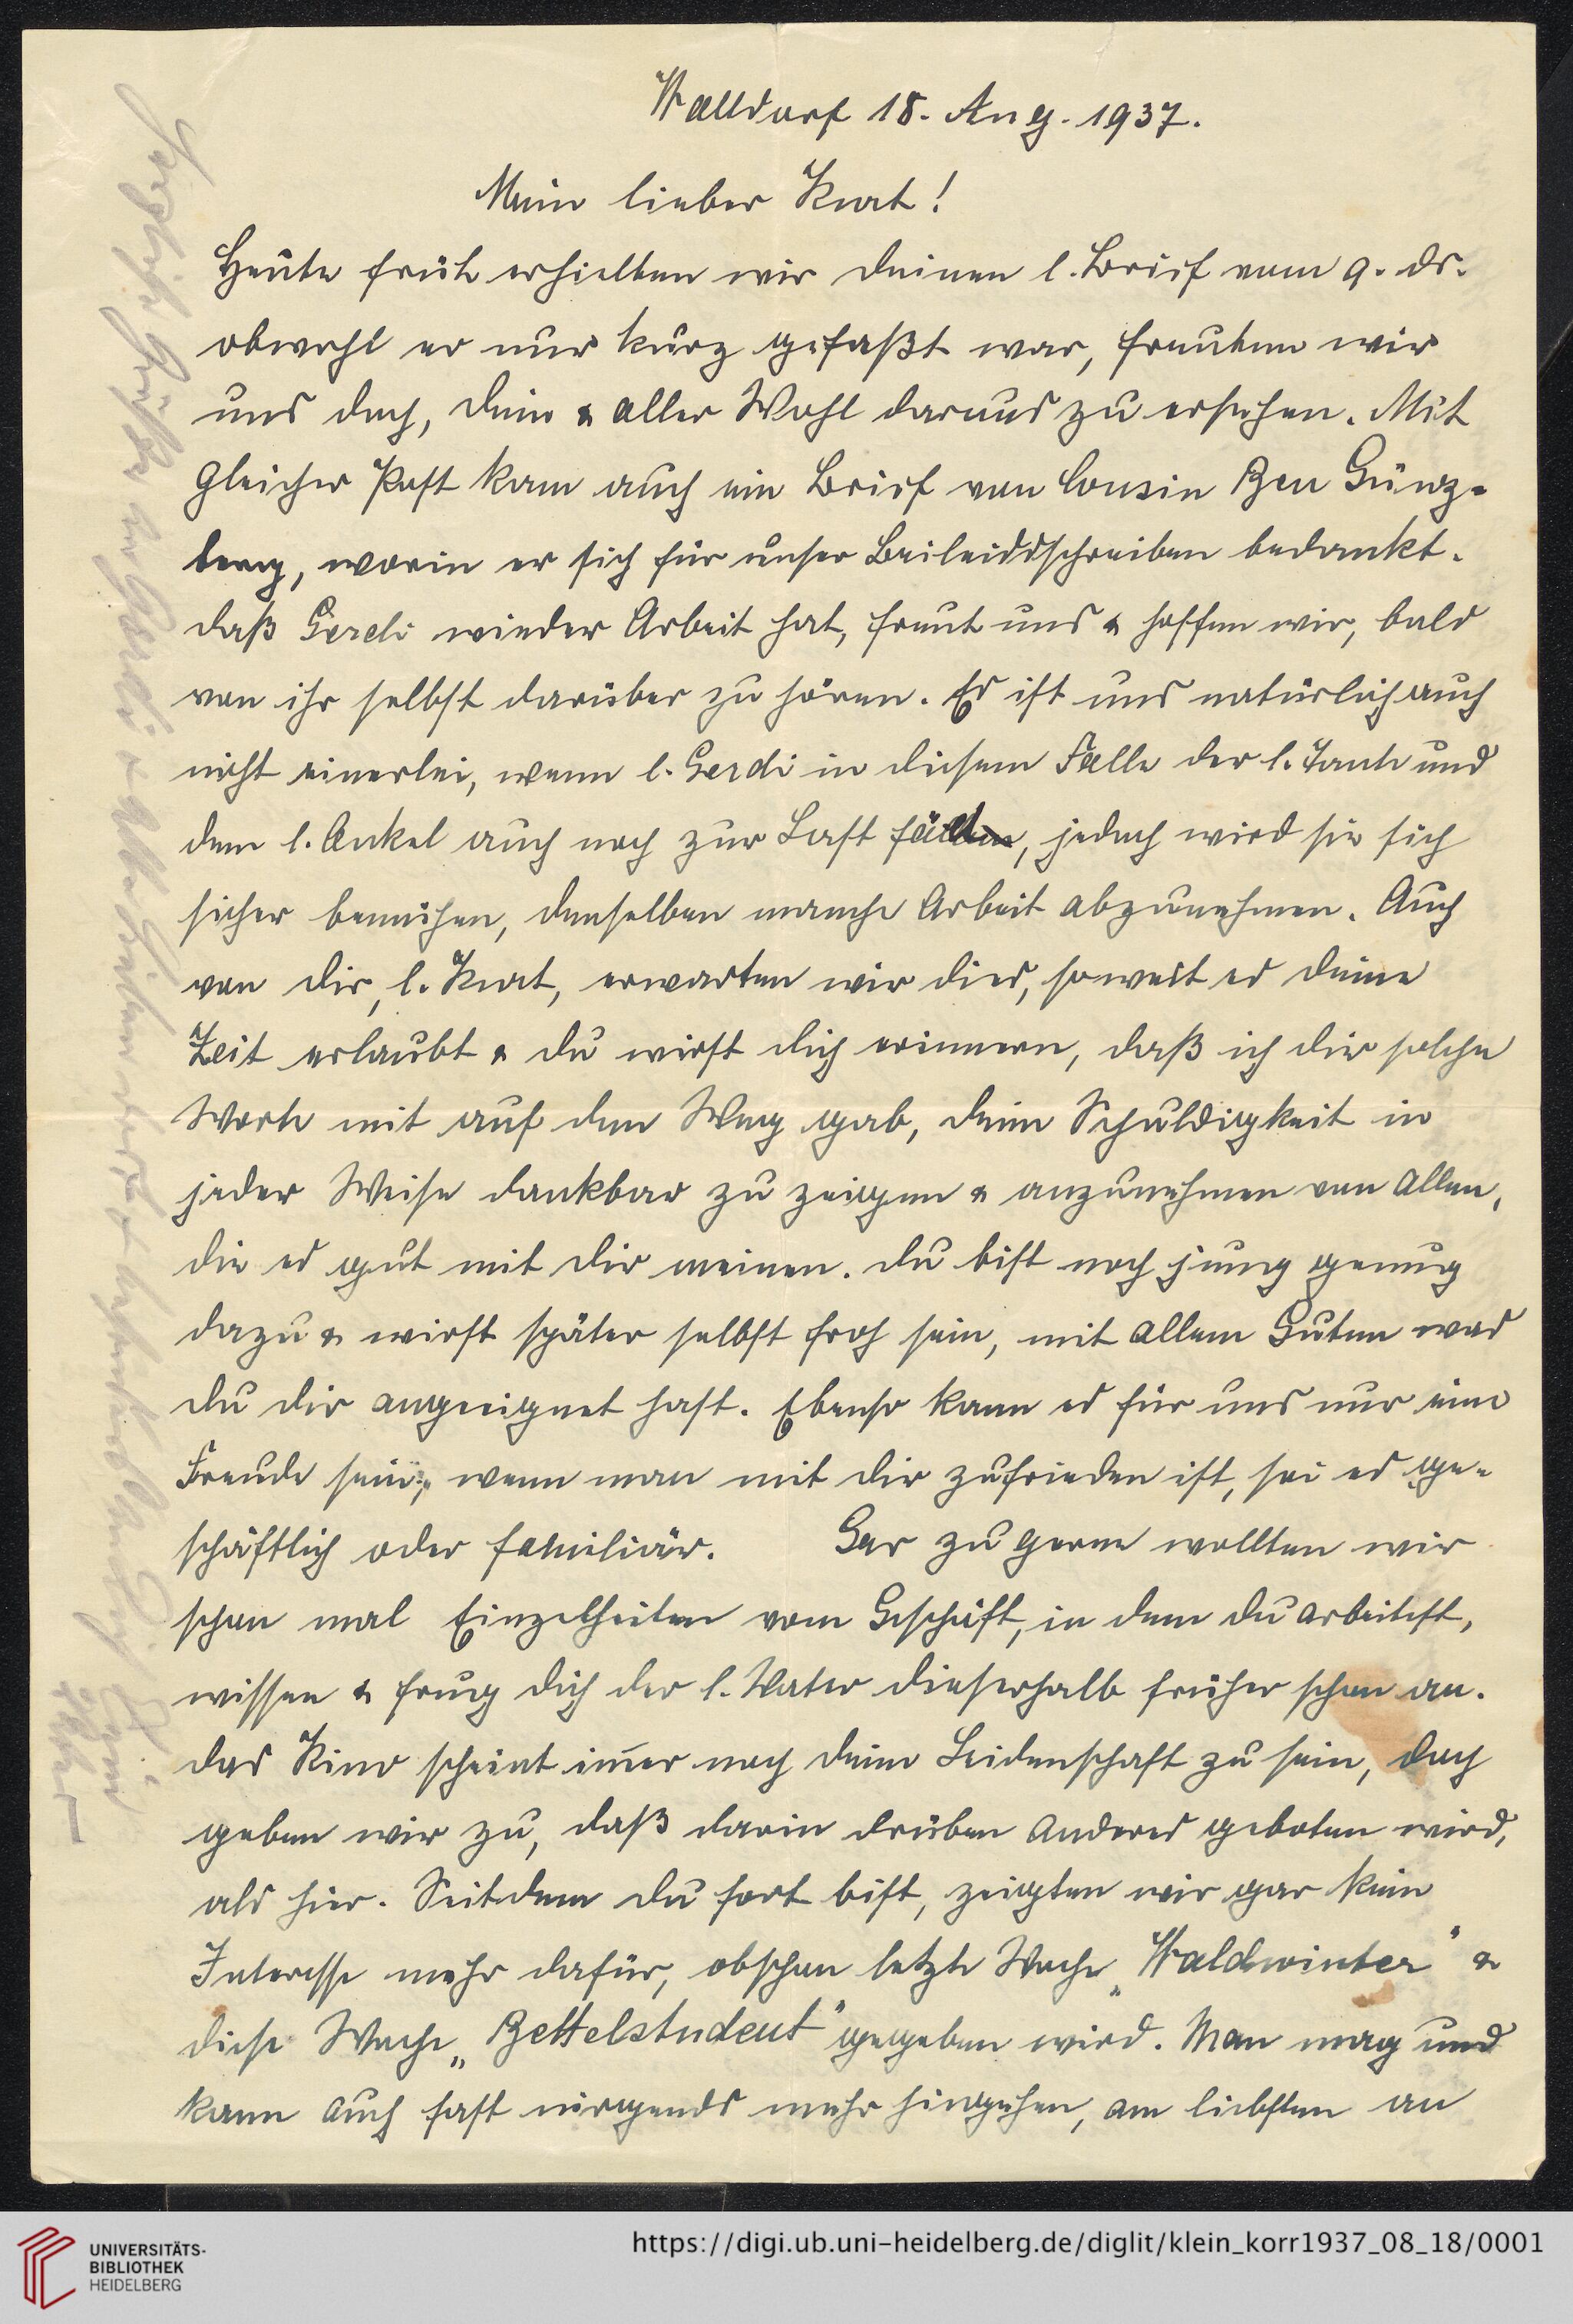 Walldorf 18. Aug. 1937.
Mein lieber Kurt!
Heute früh erhielten wir deinen l. Brief vom 9. ds.
obwohl er nur kurz gefaßt war, freuten wir
uns doch, dein & aller Wohl daraus zu ersehen. Mit
gleicher Post kam auch ein Brief von Cousin Ben Günz-
berg, worin er sich für unser Beileidsschreiben bedankt.
daß Gerdi wieder Arbeit hat, freut uns & hoffen wir, bald
von ihr selbst darüber zu hören. Es ist uns natürlich auch
nicht einerlei, wenn l. Gerdi in diesem Falle der l. Tante und
dem l. Onkel auch noch zur Last fällt, jedoch wird sie sich
sicher bemühen, denselben manche Arbeit abzunehmen. Auch
von dir, l. Kurt, erwarten wir dies, soweit es deine
Zeit erlaubt & du wirst dich erinnern, daß ich dir solche
Worte mit auf den Weg gab, deine Schuldigkeit in
jeder Weise dankbar zu zeigen & anzunehmen von Allen,
die es gut mit dir meinen. du bist noch jung genug
dazu & wirst später selbst froh sein, mit allem Guten was
du dir angeeignet hast. Ebenso kann es für uns nur eine
Freude sein, wenn man mit dir zufrieden ist, sei es ge-
schäftlich oder familiär. Gar zu gerne wollten wir
schon mal Einzelheiten vom Geschäft, in dem du arbeitest,
wissen & frug dich der l. Vater dieserhalb früher schon an.
das Kino scheint immer noch deine Leidenschaft zu sein, doch
geben wir zu, daß darin drüben Anderes geboten wird,
als hier. Seitdem du fort bist, zeigten wir gar kein
Interesse mehr dafür, obschon letzte Woche „Waldwinter" &
diese Woche „Bettelstudent" gegeben wird. Man mag und
kann auch fast nirgends mehr hingehen, am liebsten an
UNIVERSITÄTS-
BIBLIOTHEK
HEIDELBERG
https://digi.ub.uni-heidelberg.de/diglit/klein_korr1937_08_18/0001